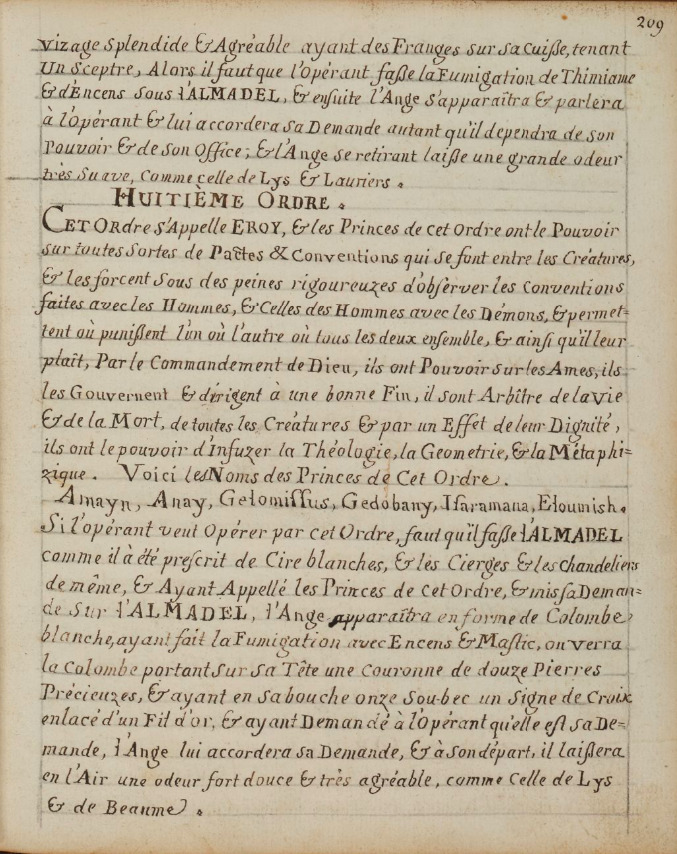 209
vizage Splendide & Agréable ayant des Franges sur sa Cuiße, tenant
Un Sceptre, Alors il faut que l'opérant faße la Fumigation de Thimiame
& d'Encens sous l'ALMADEL, & ensuite l'Ange s'apparaîtra & parlera
à l'opérant & lui accordera sa Demande autant qu'il dependra de son
Pouvoir & de son Office; & l'Ange se retirant laiße une grande odeur
très Suave, Comme celle de Lys & Lauriers.
HUITIÈME ORDRE.
CET ORdre s'Appelle EROY, & les Princes de cet Ordre ont le Pouvoir
sur toutes Sortes de Pactes & Conventions qui se font entre les Créatures,
& les forcent Sous des peines rigoureuzes d'observer les Conventions
faites avec les Hommes, & Celles des Hommes avec les Démons, & permet=
tent où punißent l'un où l'autre où tous les deux ensemble, & ainsi qu'il leur
plaît, Par le Commandement de Dieu, ils ont Pouvoir sur les Ames, ils
les Gouvernent & dirigent à une bonne Fin, il sont Arbître de la Vie
& de la Mort, de toutes les Créatures & par un Effet de leur Dignité,
ils ont le pouvoir d'Infuzer la Théologie, la Geometrie, & la Métaphi=
zique. Voici les Noms des Princes de Cet Ordre.
Amayn, Anay, Gelomissus, Gedobany, Isaramana, Eloumish.
Si l'opérant veut Opérer par cet Ordre, faut qu'il faße l'ALMADEL
comme il à été prescrit de Cire blanches, & les Cierges & les chandeliers
de même, & Ayant Appellé les Princes de Cet Ordre, & mis sa Deman=
de Sur l'ALMADEL, l'Ange apparaîtra en forme de Colombe
blanche, ayant fait la Fumigation avec Encens & Mastic, on verra
la Colombe portant sur sa Tête une Couronne de douze Pierres
Précieuzes, & ayant en sa bouche onze Sou-bec un Signe de Croix
enlacé d'un Fil d'or, & ayant Demandé à l'Opérant qu'elle est sa De=
mande, l'Ange lui accordera sa Demande, & à son départ, il laißera
en l'Air une odeur fort douce & très agréable, comme Celle de Lys
& de Beaume.